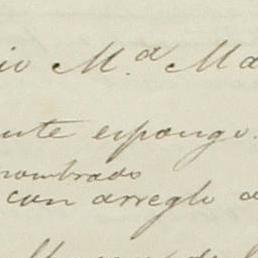 io M.ª Ma
nte espongo.
nombrado
con arreglo a